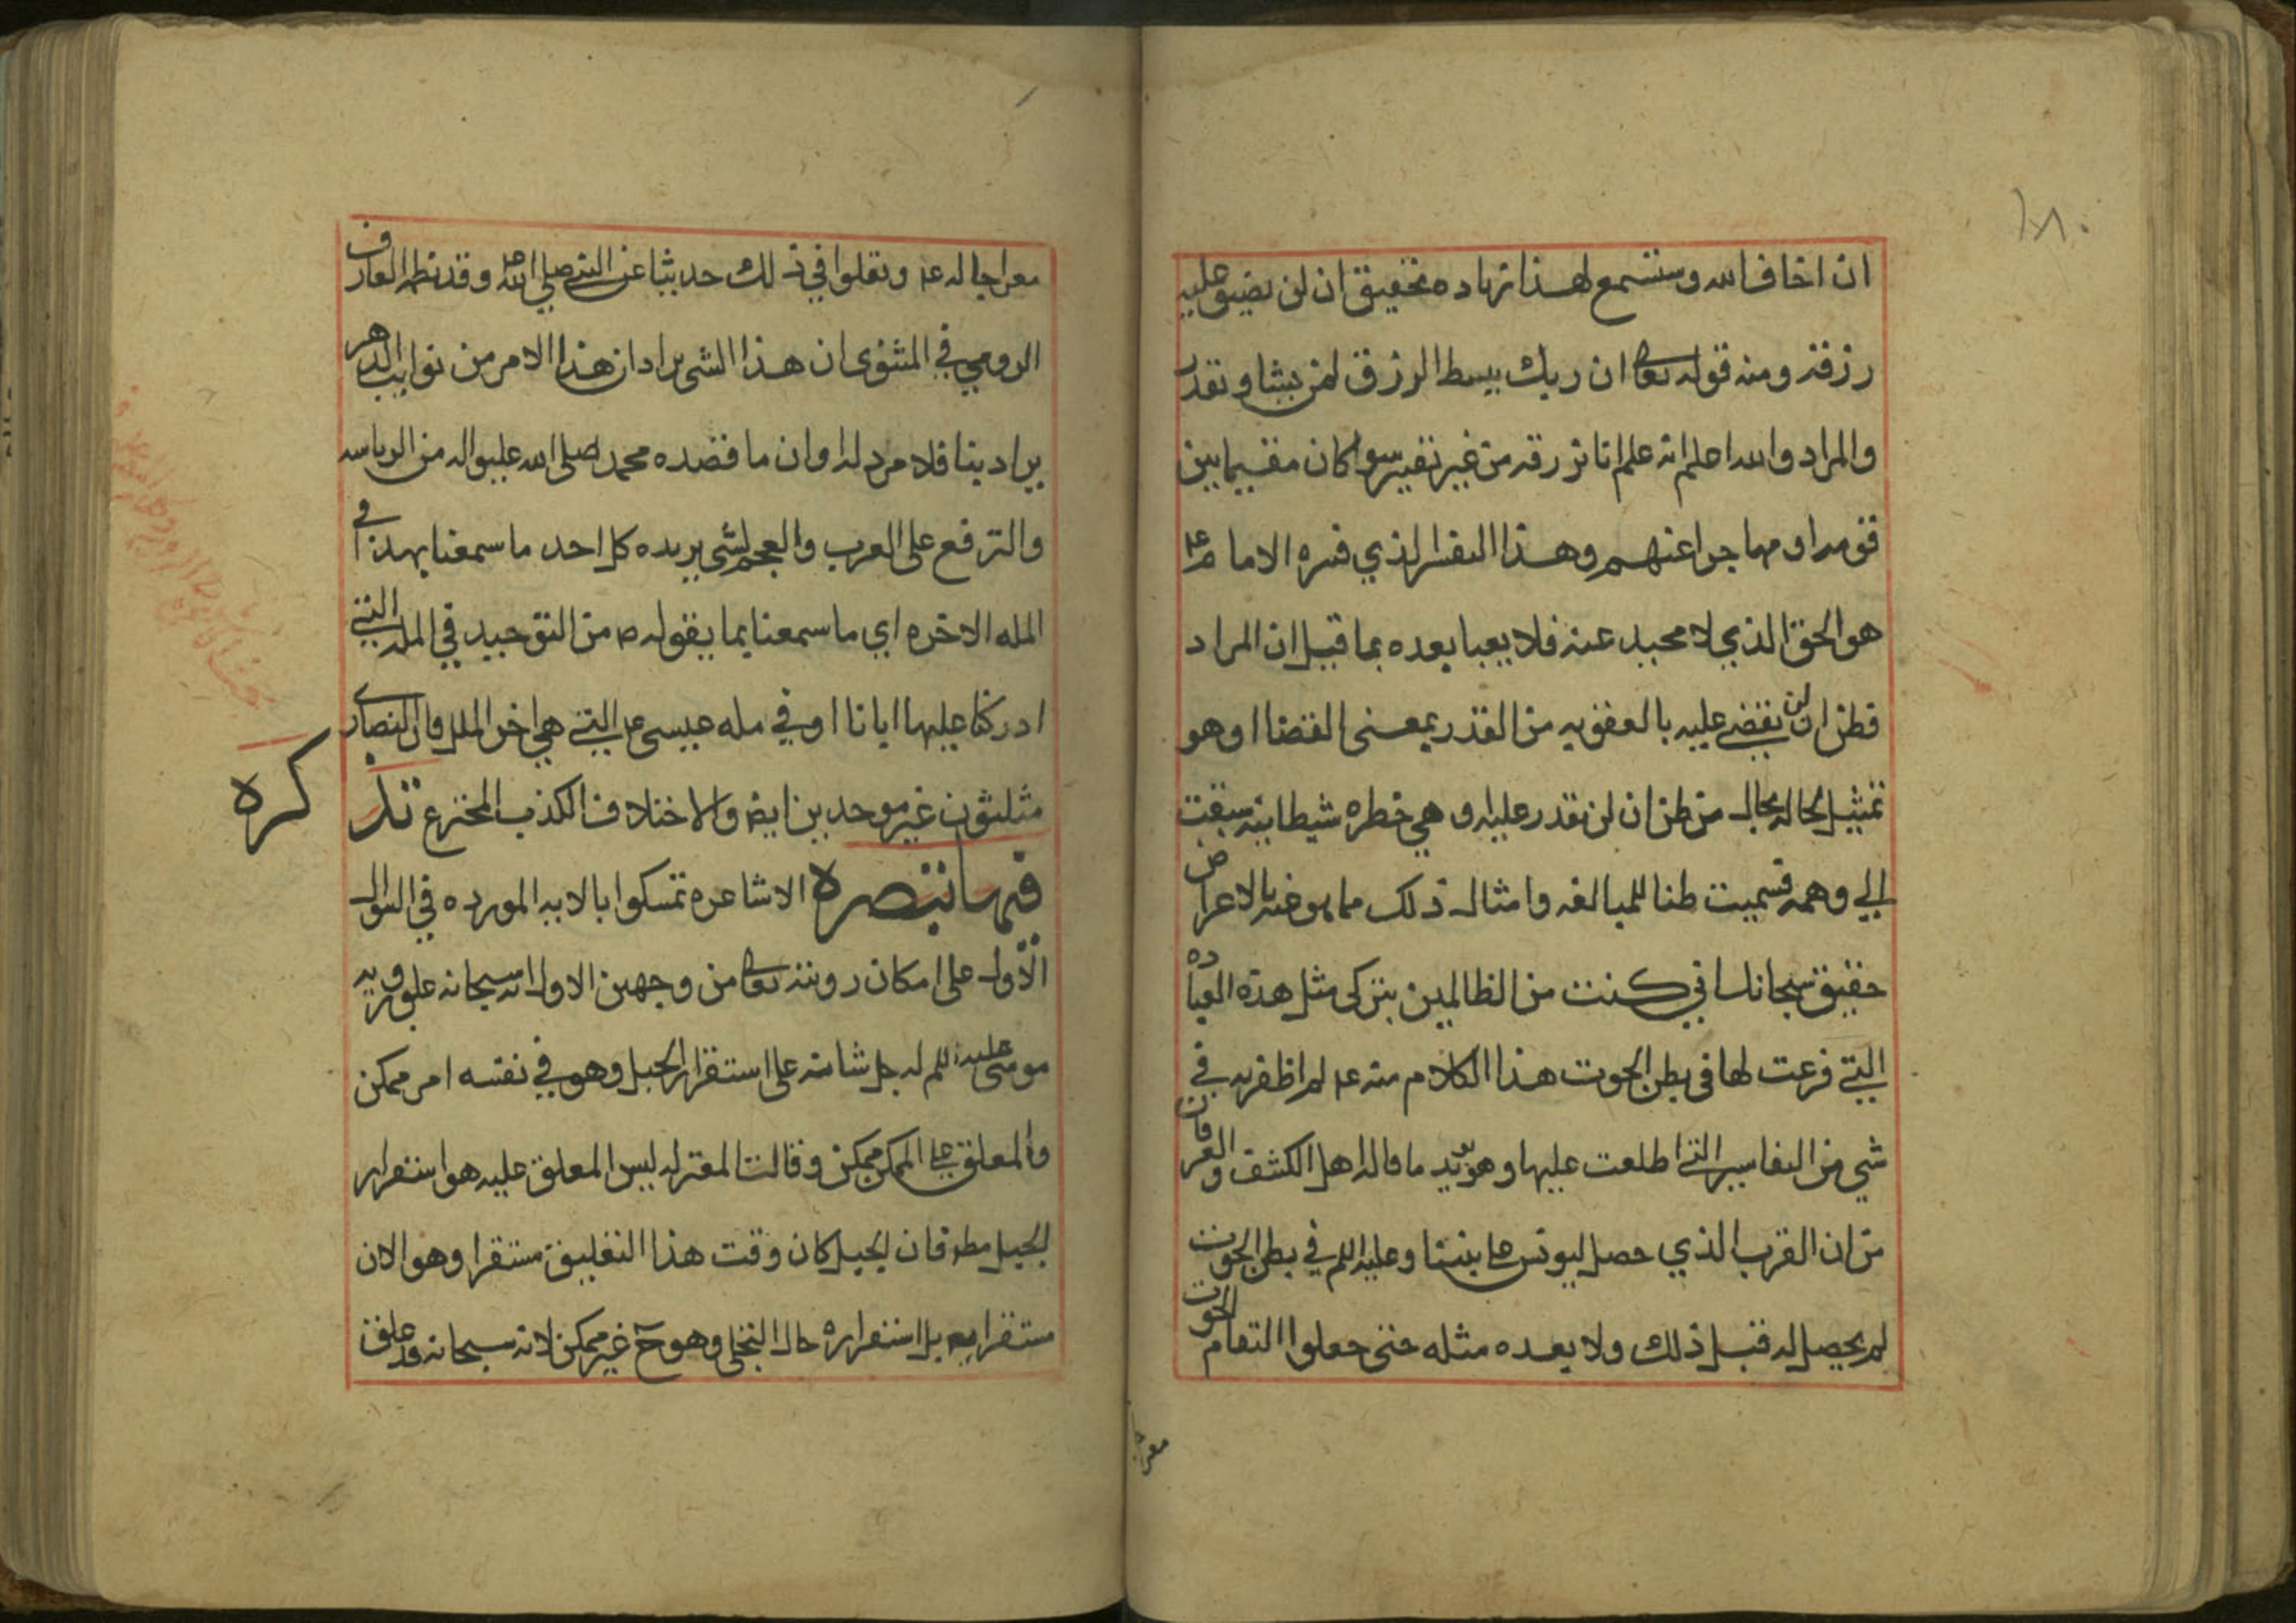 ١٨٠
ان اخاف الله وستسمع لهذا زياده تحقيق ان لن نضيق عليه
رزقه ومنه قوله تعالى ان ربك يبسط الرزق لمن يشا ويقدر
والمراد والله اعلم انه علم انا نرزقه من غير تقتير سوا كان مقيما بين
قومه او مهاجرا عنهم وهذا التفسير الذي فسره الامام ع
هو الحق الذي لا محيد عنه فلا يعبا بعده بما قيل ان المراد
فظن ان لن نقضي عليه بالعقوبه من القدر بمعنى القضا او هو
تمثيل لحاله بحال من ظن ان لن نقدر عليه او هي خطره شيطانيه سبقت
الي وهمه فسميت ظنا للمبالغه وامثال ذلك مما هو خليق بالاعراض
حقيق سبحانك اني كنت من الظالمين بتركي مثل هذه العباده
التي فرغت لها في بطن الحوت هذا الكلام منه ع لم اظفر به في
شي من التفاسير التي اطلعت عليها وهو يويد ما قاله اهل الكشف والعرفان
من ان القرب الذي حصل ليونس على نبينا وعليه اللم في بطن الحوت
لم يحصل له قبل ذلك ولا بعده مثله حتى جعلوا التقام الحوت
معرا
معراجا له ع ونقلوا في ذلك حديثا عن النبي صلى الله وقد نظمه العارف
الرومي في المثنوى ان هذا الشي يراد ان هذا الامر من نوايب الدهر
يراد بنا فلا مرد له او ان ما قصده محمد صلى الله عليه واله من الرياسه
والترفع على العرب والعجم لشي يريده كل احد ما سمعنا بهذا في
المله الاخره اي ما سمعنا بما يقوله ص من التوحيد في المله التي
ادركنا عليها ابانا او في مله عيسى ع التي هي اخر الملل فان النصارى
مثلثون غير موحدين ايض والاختلاف الكذب المخترع تذ
كره
فيها تبصره الاشاعره تمسكوا بالايه المورده في السوال
الاول على امكان رويته تعالى من وجهين الاول انه سبحانه علق رويه
موسى عليه اللم له جل شانه على استقرار الجبل وهو في نفسه امر ممكن
والمعلق على الممكن ممكن وقالت المعتزله ليس المعلق عليه هو استقرار
الجبل مطلقا فان الجبل كان وقت هذا التعليق مستقرا وهو الان
مستقر ايضا بل استقراره حال التجلي وهو ح غير ممكن لانه سبحانه قد علق